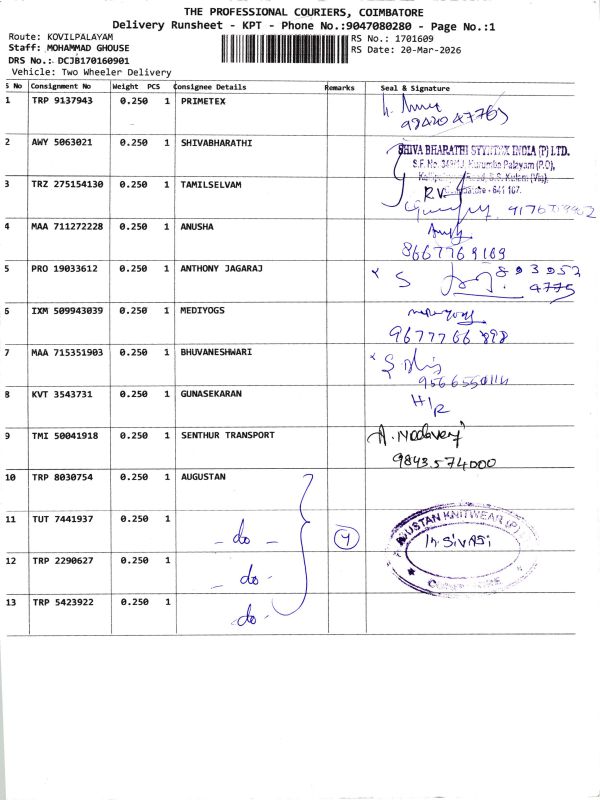 THE PROFESSIONAL COURIERS, COIMBATORE
Delivery Runsheet - KPT - Phone No.:9047080280 - Page No.:1
Route: KOVILPALAYAM
RS No.: 1701609
Staff: MOHAMMAD GHOUSE
RS Date: 20-Mar-2026
DRS No.: DCJB170160901
Vehicle: Two Wheeler Delivery
S No Consignment No Weight PCS Consignee Details Remarks Seal & Signature
1 TRP 9137943 0.250 1 PRIMETEX
2 AWY 5063021 0.250 1 SHIVABHARATHI
SHIVA BHARATHI INDIA (P) LTD.
S.F. No. Kurumba Palayam (P.O),
S.S. Kulam (Via),
3 TRZ 275154130 0.250 1 TAMILSELVAM
R.V
4 MAA 711272228 0.250 1 ANUSHA
8667769169
5 PRO 19033612 0.250 1 ANTHONY JAGARAJ
6 IXM 509943039 0.250 1 MEDIYOGS
9677766898
7 MAA 715351903 0.250 1 BHUVANESHWARI
8 KVT 3543731 0.250 1 GUNASEKARAN
H/R
9 TMI 50041918 0.250 1 SENTHUR TRANSPORT
9843574000
10 TRP 8030754 0.250 1 AUGUSTAN
11 TUT 7441937 0.250 1
- do -
4
AUGUSTAN KNITWEAR (P)
12 TRP 2290627 0.250 1
- do -
13 TRP 5423922 0.250 1
do -